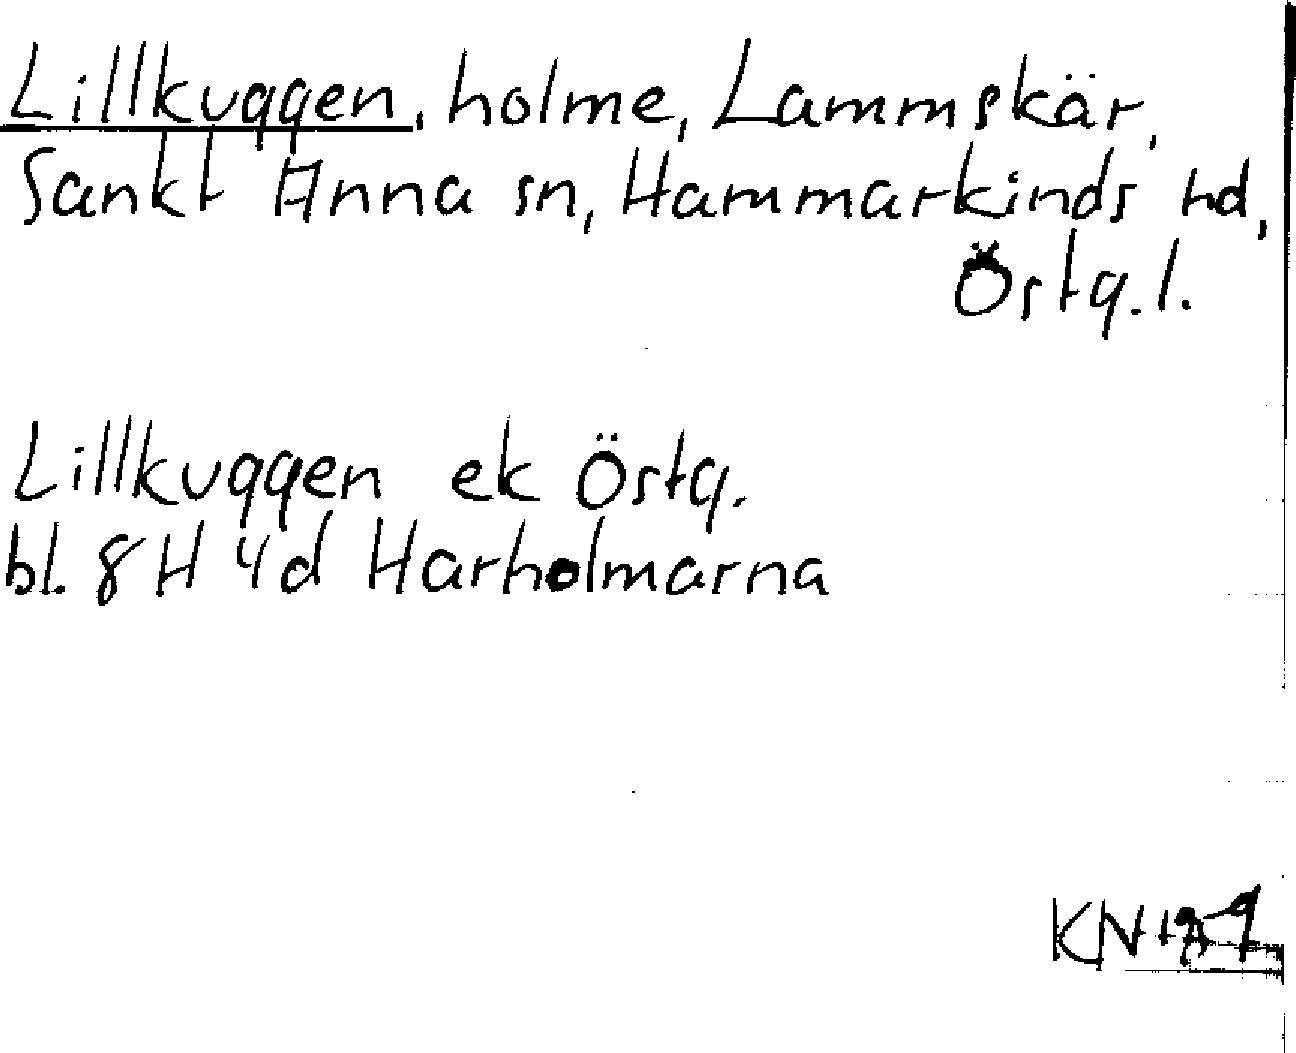 Lillkuggen, holme, Lammskär,
Sankt Anna sn, Hammarkinds hd,
Östg. l.
Lillkuggen ek Östg.
bl. 8H 4d Harholmarna